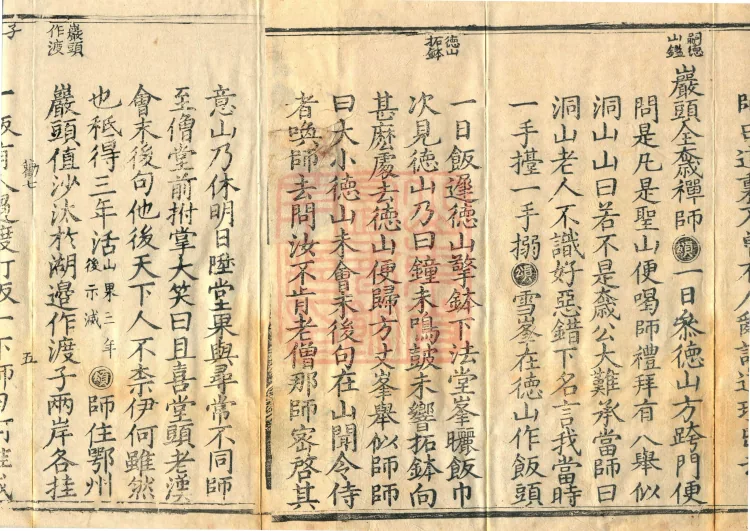 嗣徳
山鑑
巖頭全奯禪師 頌 一日參徳山方跨門便
問是凡是聖山便喝師禮拜有人舉似
洞山山曰若不是奯公大難承當師曰
洞山老人不識好惡錯下名言我當時
一手擡一手搦 頌 雪峯在徳山作飯頭
徳山
拓鉢
一日飯遲徳山擎鉢下法堂峯曬飯巾
次見徳山乃曰鐘未鳴鼓未響拓鉢向
甚麽處去徳山便歸方丈峯舉似師師
曰大小徳山未會末後句在山聞令侍
者喚師去問汝不肯老僧那師密啓其
意山乃休明日陞堂果與尋常不同師
至僧堂前拊掌大笑曰且喜堂頭老漢
會末後句他後天下人不柰伊何雖然
也秪得三年活 山果三年後示滅 頌 師住鄂州
巖頭
作渡
巖頭值沙汰於湖邉作渡子兩岸各挂
七 五
子